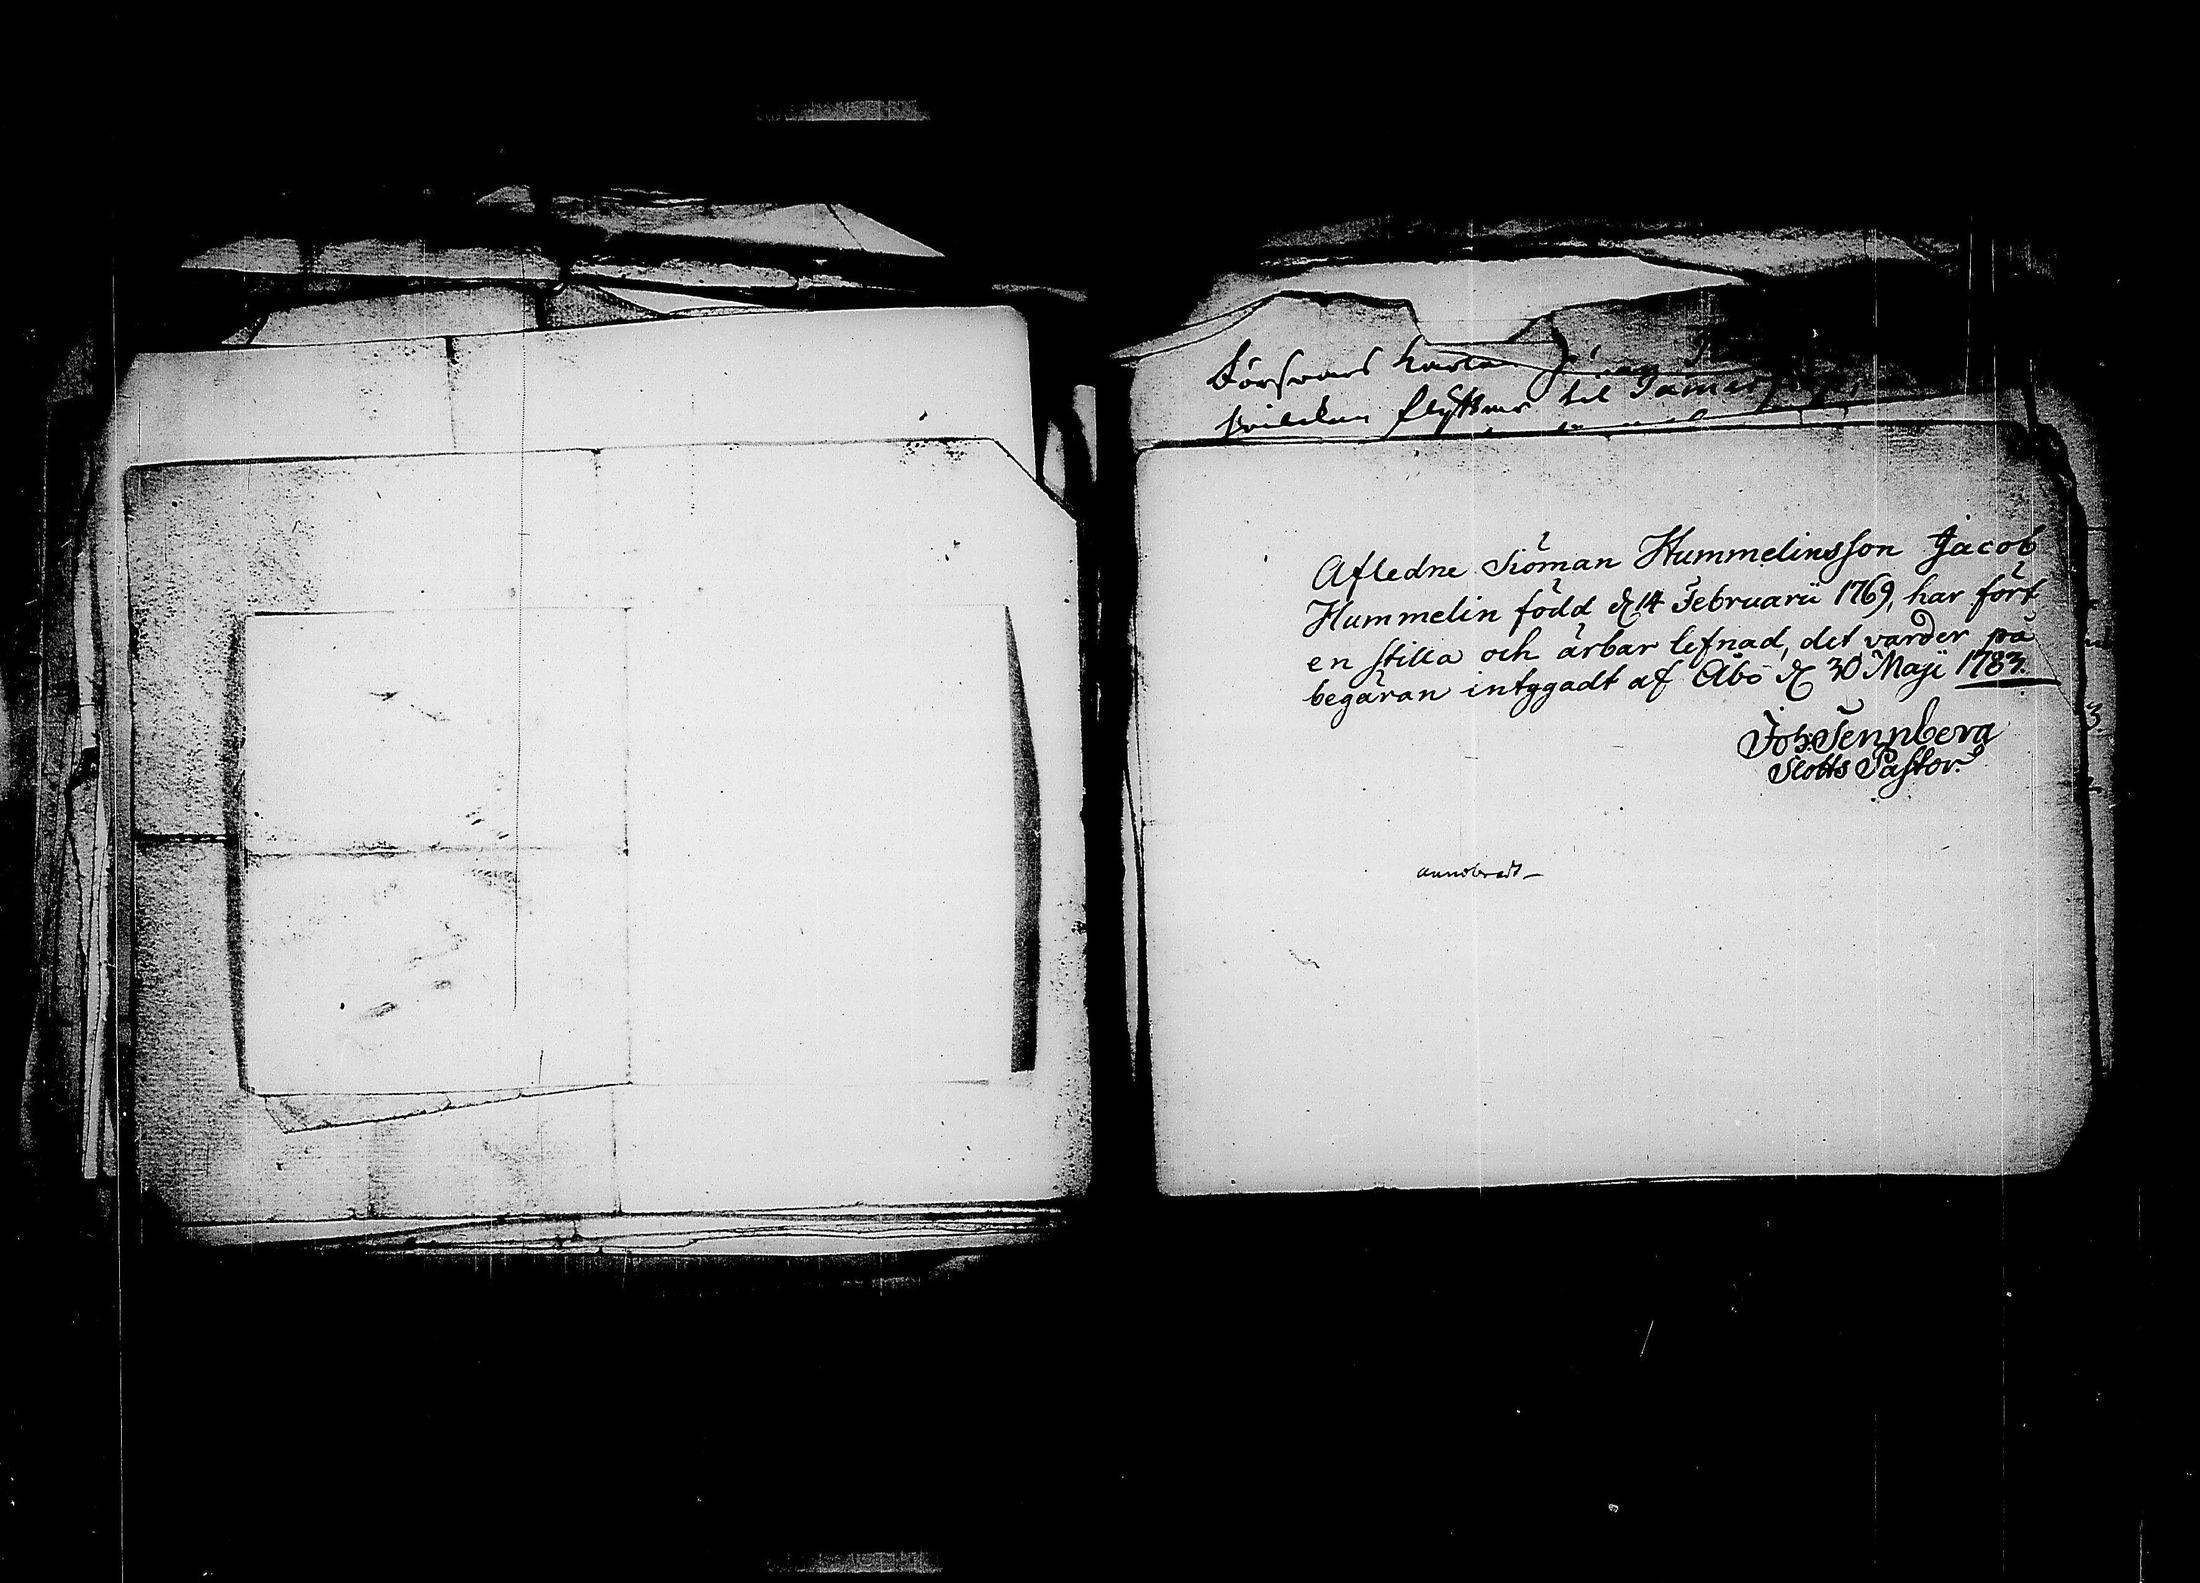 Försvars Karlen Jöran
hvilcken flyttar til Tamer
Afledne Siöman Hummelinsson Jacob
Hummelin född d. 14 Februarii 1769, har fört
en stilla och ärbar lefnad, det varder på
begäran intygadt af Åbo d. 30 Maji 1783.
Joh. Tennberg
Slotts Pastor.